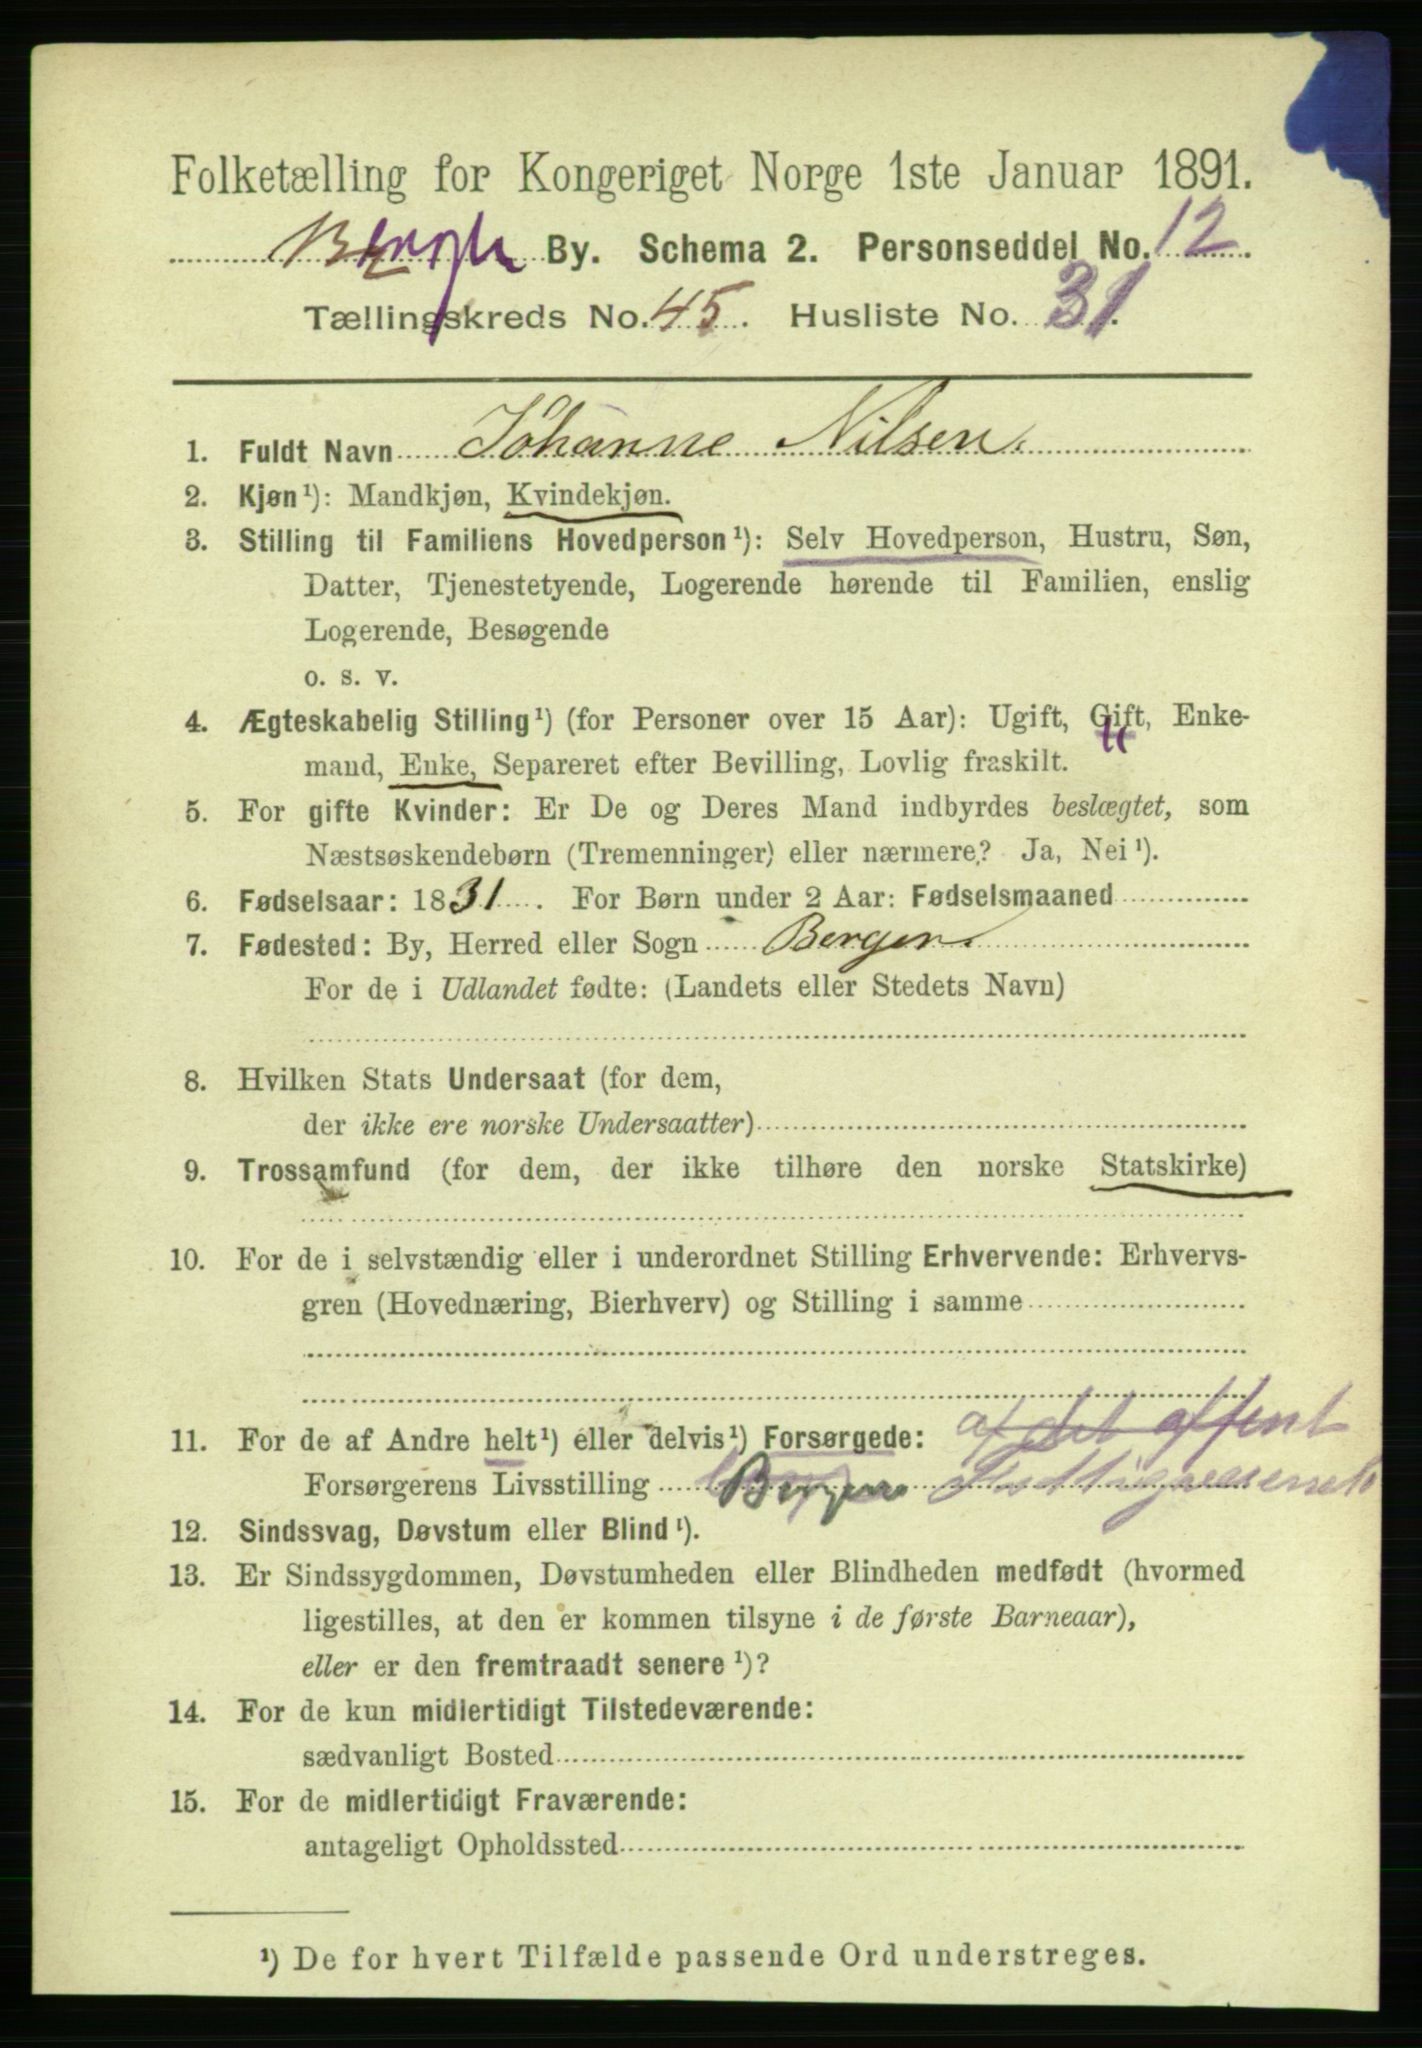 Folketælling for Kongeriget Norge 1ste Januar 1891.
By. Schema 2. Personseddel No. 12.
Tællingskreds No. 45. Husliste No. 31.
1. Fuldt Navn Johanne Nilsen.
2. Kjøn¹): Mandkjøn, Kvindekjøn.
3. Stilling til Familiens Hovedperson¹): Selv Hovedperson, Hustru, Søn,
Datter, Tjenestetyende, Logerende hørende til Familien, enslig
Logerende, Besøgende
o. s. v.
4. Ægteskabelig Stilling¹) (for Personer over 15 Aar): Ugift, Gift, Enke-
mand, Enke, Separeret efter Bevilling, Lovlig fraskilt.
5. For gifte Kvinder: Er De og Deres Mand indbyrdes beslægtet, som
Næstsøskendebørn (Tremenninger) eller nærmere? Ja, Nei¹).
6. Fødselsaar: 1831. For Børn under 2 Aar: Fødselsmaaned
7. Fødested: By, Herred eller Sogn Bergen
For de i Udlandet fødte: (Landets eller Stedets Navn)
8. Hvilken Stats Undersaat (for dem,
der ikke ere norske Undersaatter)
9. Trossamfund (for dem, der ikke tilhøre den norske Statskirke)
10. For de i selvstændig eller i underordnet Stilling Erhvervende: Erhvervs-
gren (Hovednæring, Bierhverv) og Stilling i samme
11. For de af Andre helt¹) eller delvis¹) Forsørgede: af det offent
Forsørgerens Livsstilling Bergens
12. Sindssvag, Døvstum eller Blind¹).
13. Er Sindssygdommen, Døvstumheden eller Blindheden medfødt (hvormed
ligestilles, at den er kommen tilsyne i de første Barneaar),
eller er den fremtraadt senere¹)?
14. For de kun midlertidigt Tilstedeværende:
sædvanligt Bosted
15. For de midlertidigt Fraværende:
antageligt Opholdssted
¹) De for hvert Tilfælde passende Ord understreges.